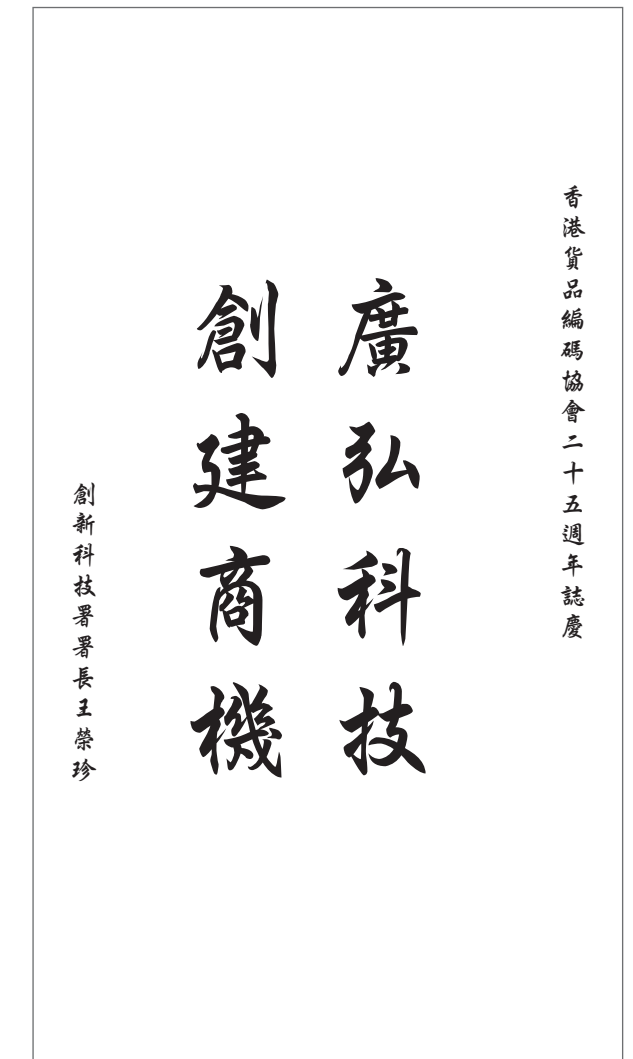 香港貨品編碼協會二十五週年誌慶
廣弘科技
創建商機
創新科技署署長王榮珍